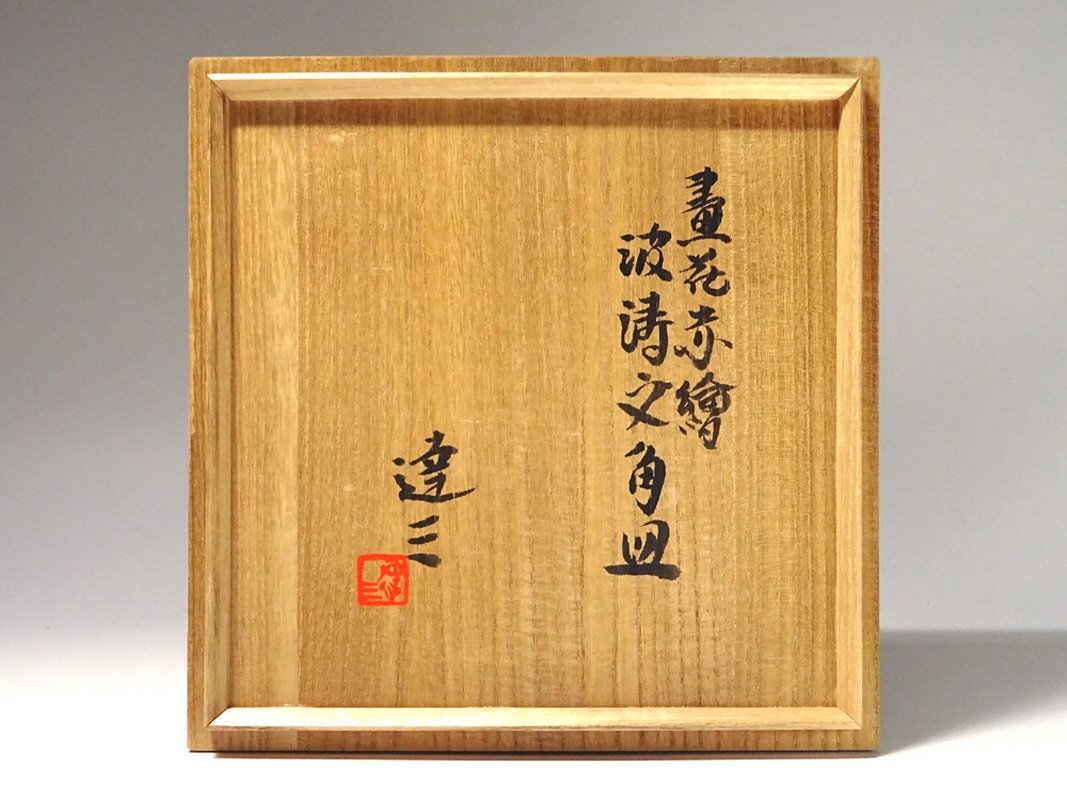 畫花赤繪
波涛文角皿
達三